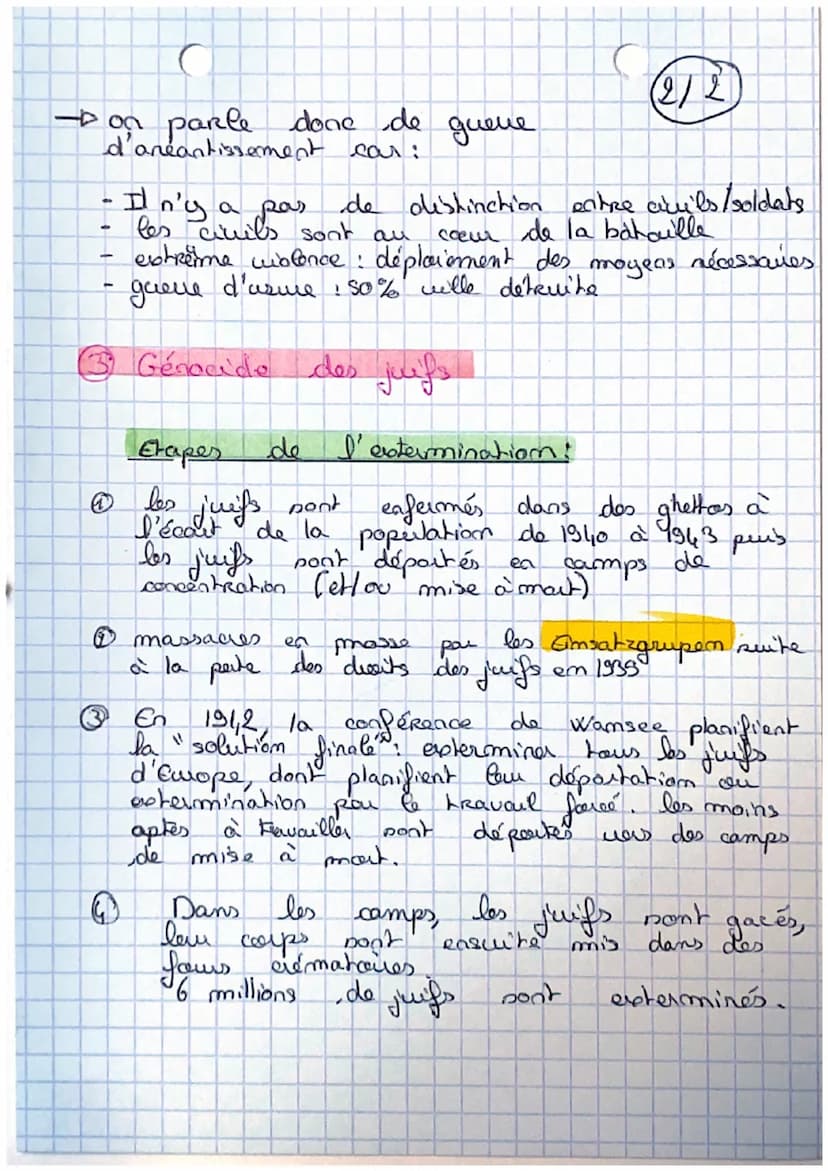 2/2
→ on parle donc de guerre
d'anéantissement car :
- Il n'y a pas de distinction entre civils/soldats
- les civils sont au coeur de la bataille
- extrême violence : déploiement des moyens nécessaires
- guerre d'usure : 50% ville détruite
③ Génocide des juifs
Etapes de l'extermination :
① les juifs sont enfermés dans des ghettos à
l'écart de la population de 1940 à 1943 puis
les juifs sont déportés en camps de
concentration (et/ou mise à mort)
② massacres en masse par les Einsatzgrupen suite
à la perte des droits des juifs en 1935
③ En 1942, la conférence de Wamsee planifient
la "solution finale" : exterminer tous les juifs
d'Europe, dont planifient leur déportation ou
extermination par le travail forcé. les moins
aptes à travailler sont déportés vers des camps
de mise à mort.
④ Dans les camps, les juifs sont gacés,
leur corps sont ensuite mis dans des
fours crématoires.
6 millions de juifs sont exterminés.